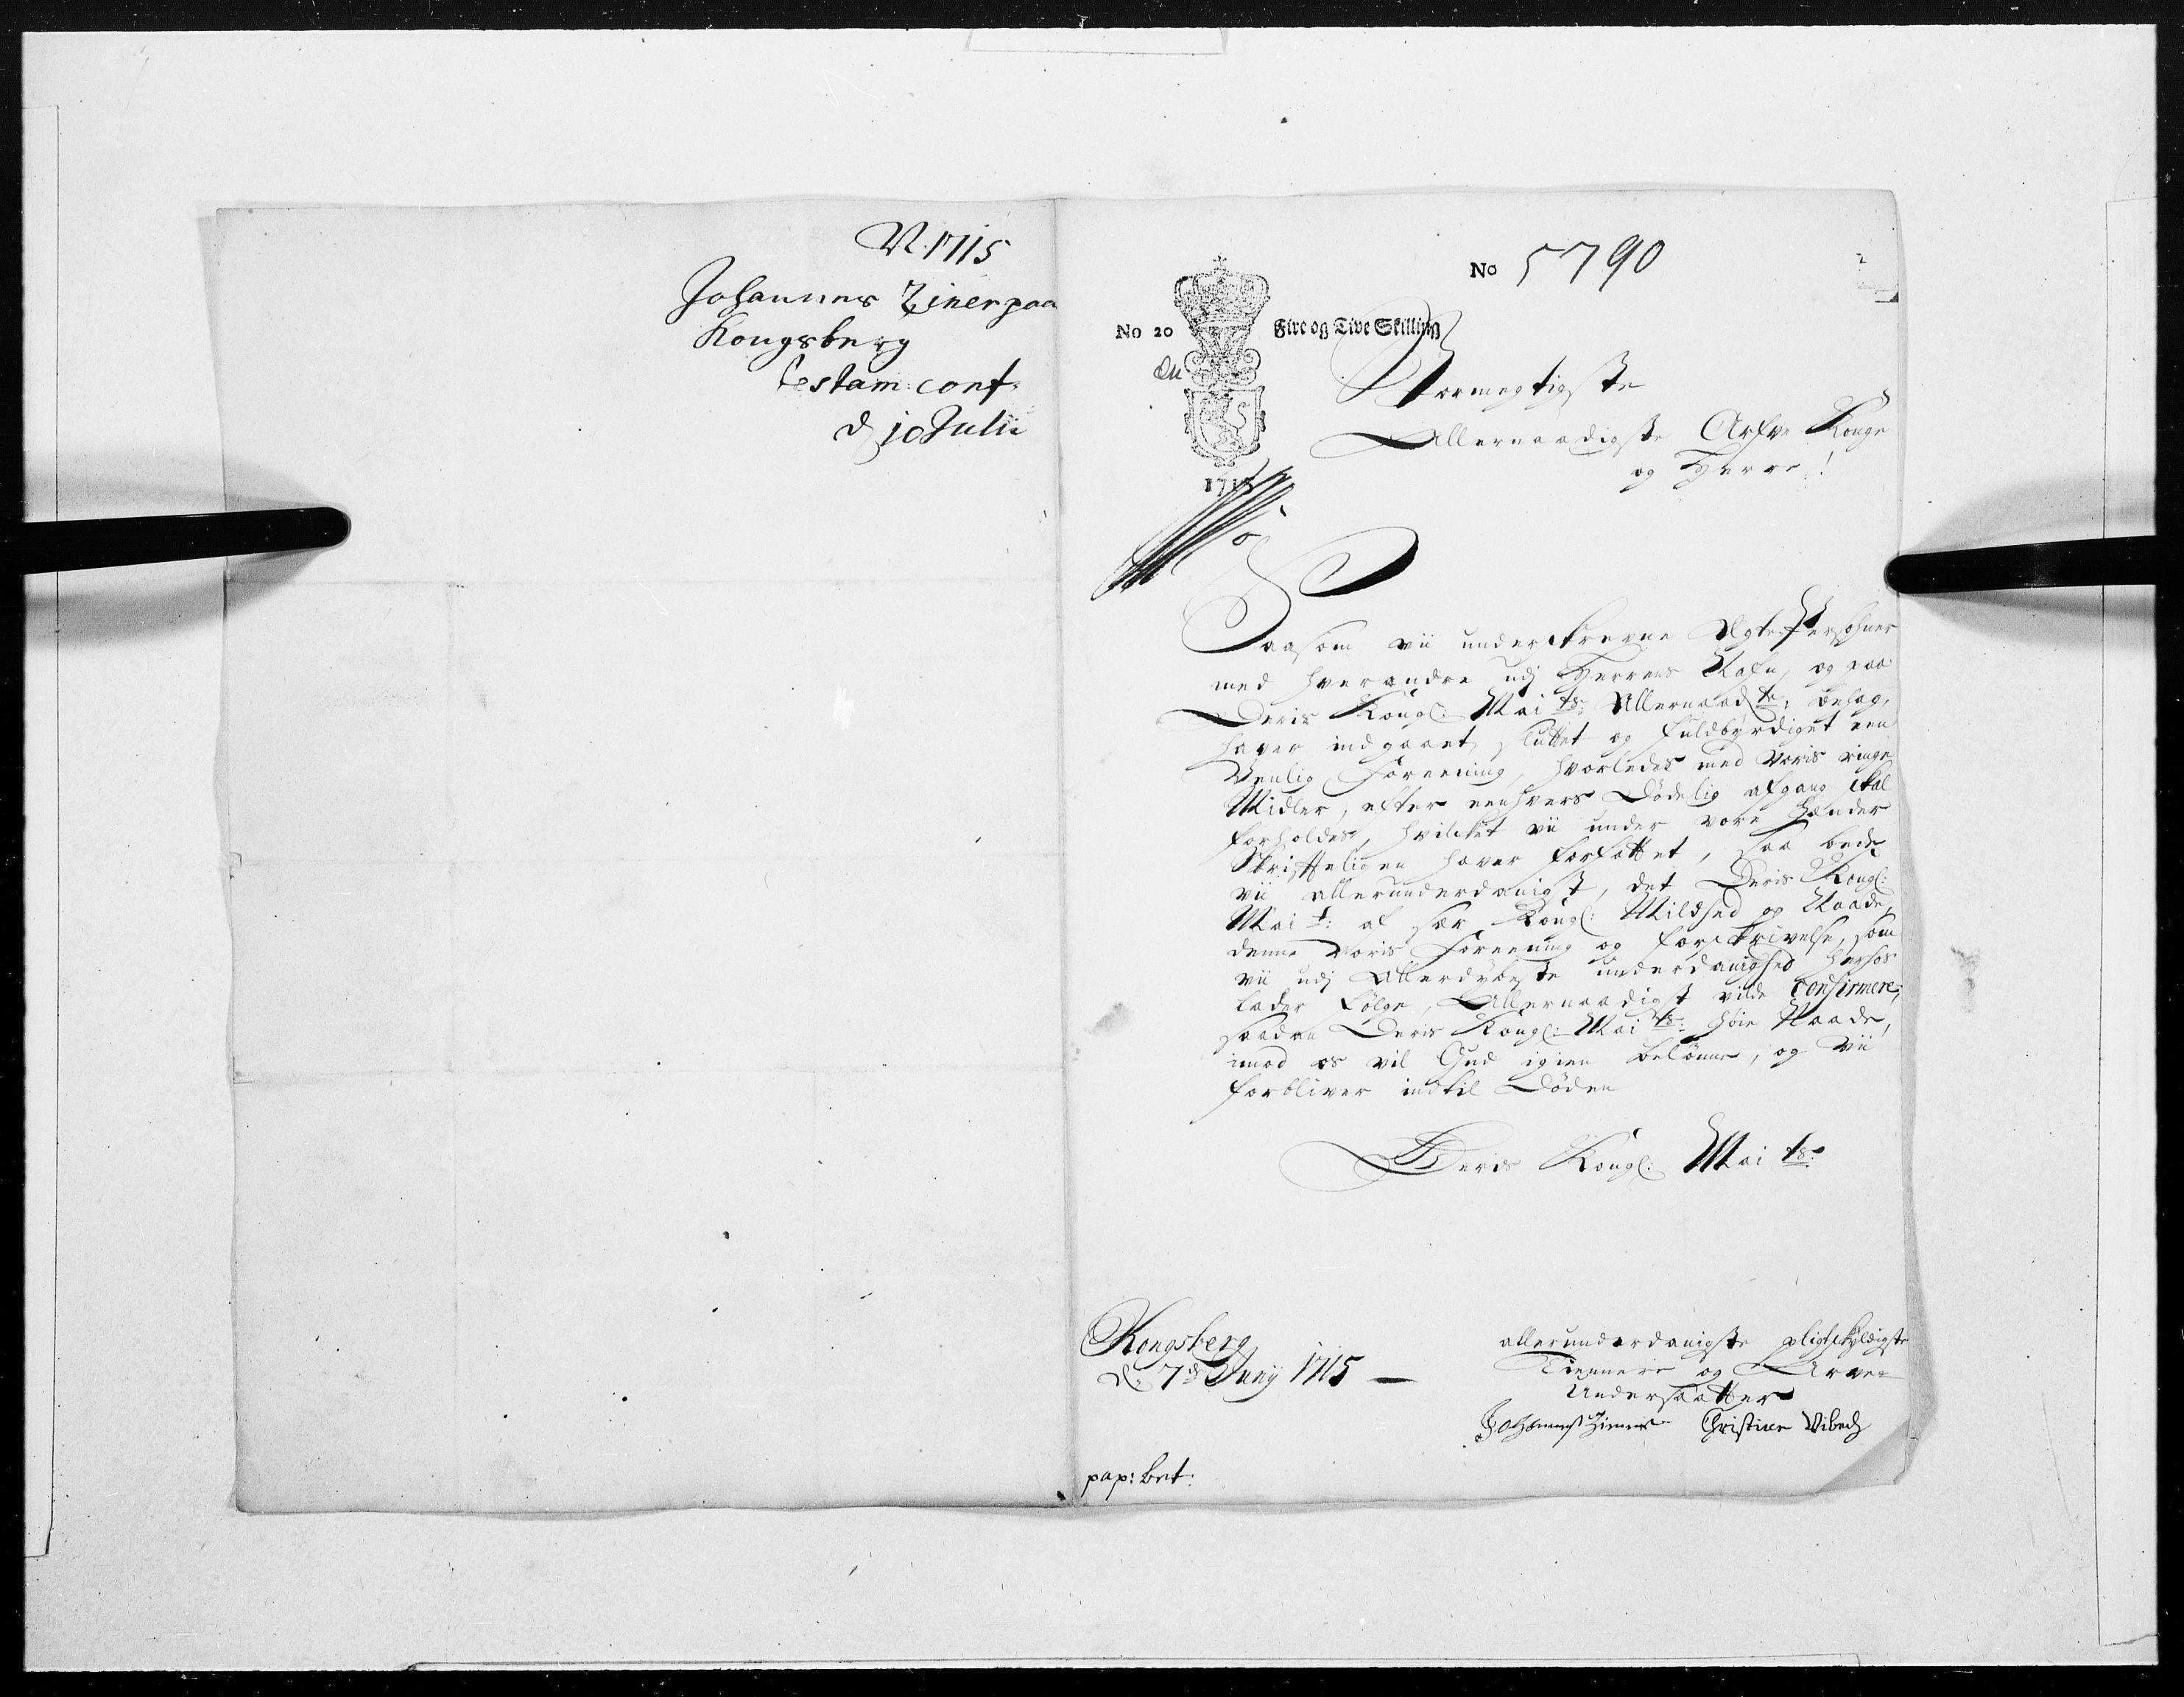 N. 1715
Johannes Ziner paa
Kongsberg
testam: conf:
d 10 Julii
No 5790
No 20 Five og Tive Skilling
1715
Stormegtigste
Allernaadigste Arfve Konge
og Herre!
Saasom vii underskrevne Egte Persohner
med hverandre udj Herrens Nafn, og paa
Deris Kongl: Maits: Allernaadte: behag,
haver indgaaet, sluttet og fuldbyrdiget een
Venlig Foreening, hvorledes med voris ringe
Midler, efter eenhvers Dødelig afgang skal
forholdes, hvilcket vii under vore Hænder
Skrifftligen haver forfattet, saa bede
vii allerunderdanigst, det Deris Kongl:
Mait: af sær Kongl: Mildhed og Naade,
denne voris Foreening og forskrivelse, som
vii udj Allerdybeste underdanighed herhos
lader følge, Allernaadigst vilde Confirmere,
saadan Deris Kongl: Maits: høie Naade,
imod os vil Gud igien belønne, og vii
forbliver indtil Døden
Deris Kongl: Maits:
Kongsberg
d: 7de Junij 1715
allerunderdanigste pligtskyldigste
Tiennere og Arve-
Undersaatter
Johannes Ziener Christine Vibech
pap: bet: